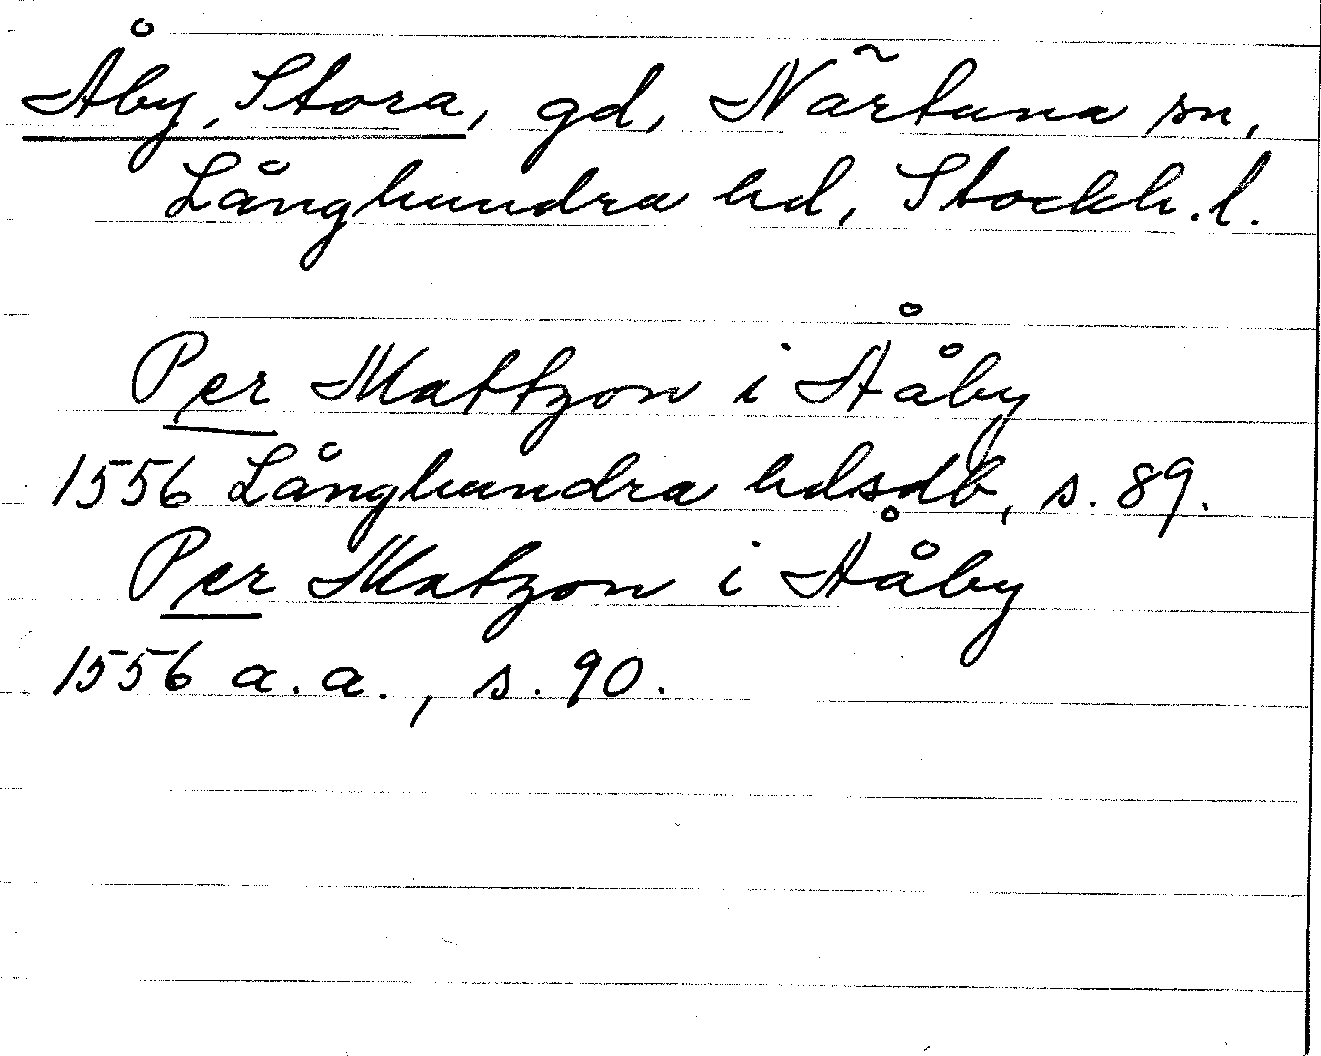 Åby, Stora, gd, Närtuna sn,
Långhundra hd, Stockh. l.
Per Mattzon i Ååby
1556 Långhundra hdsdb, s. 89.
Per Matzon i Ååby
1556 a. a., s. 90.